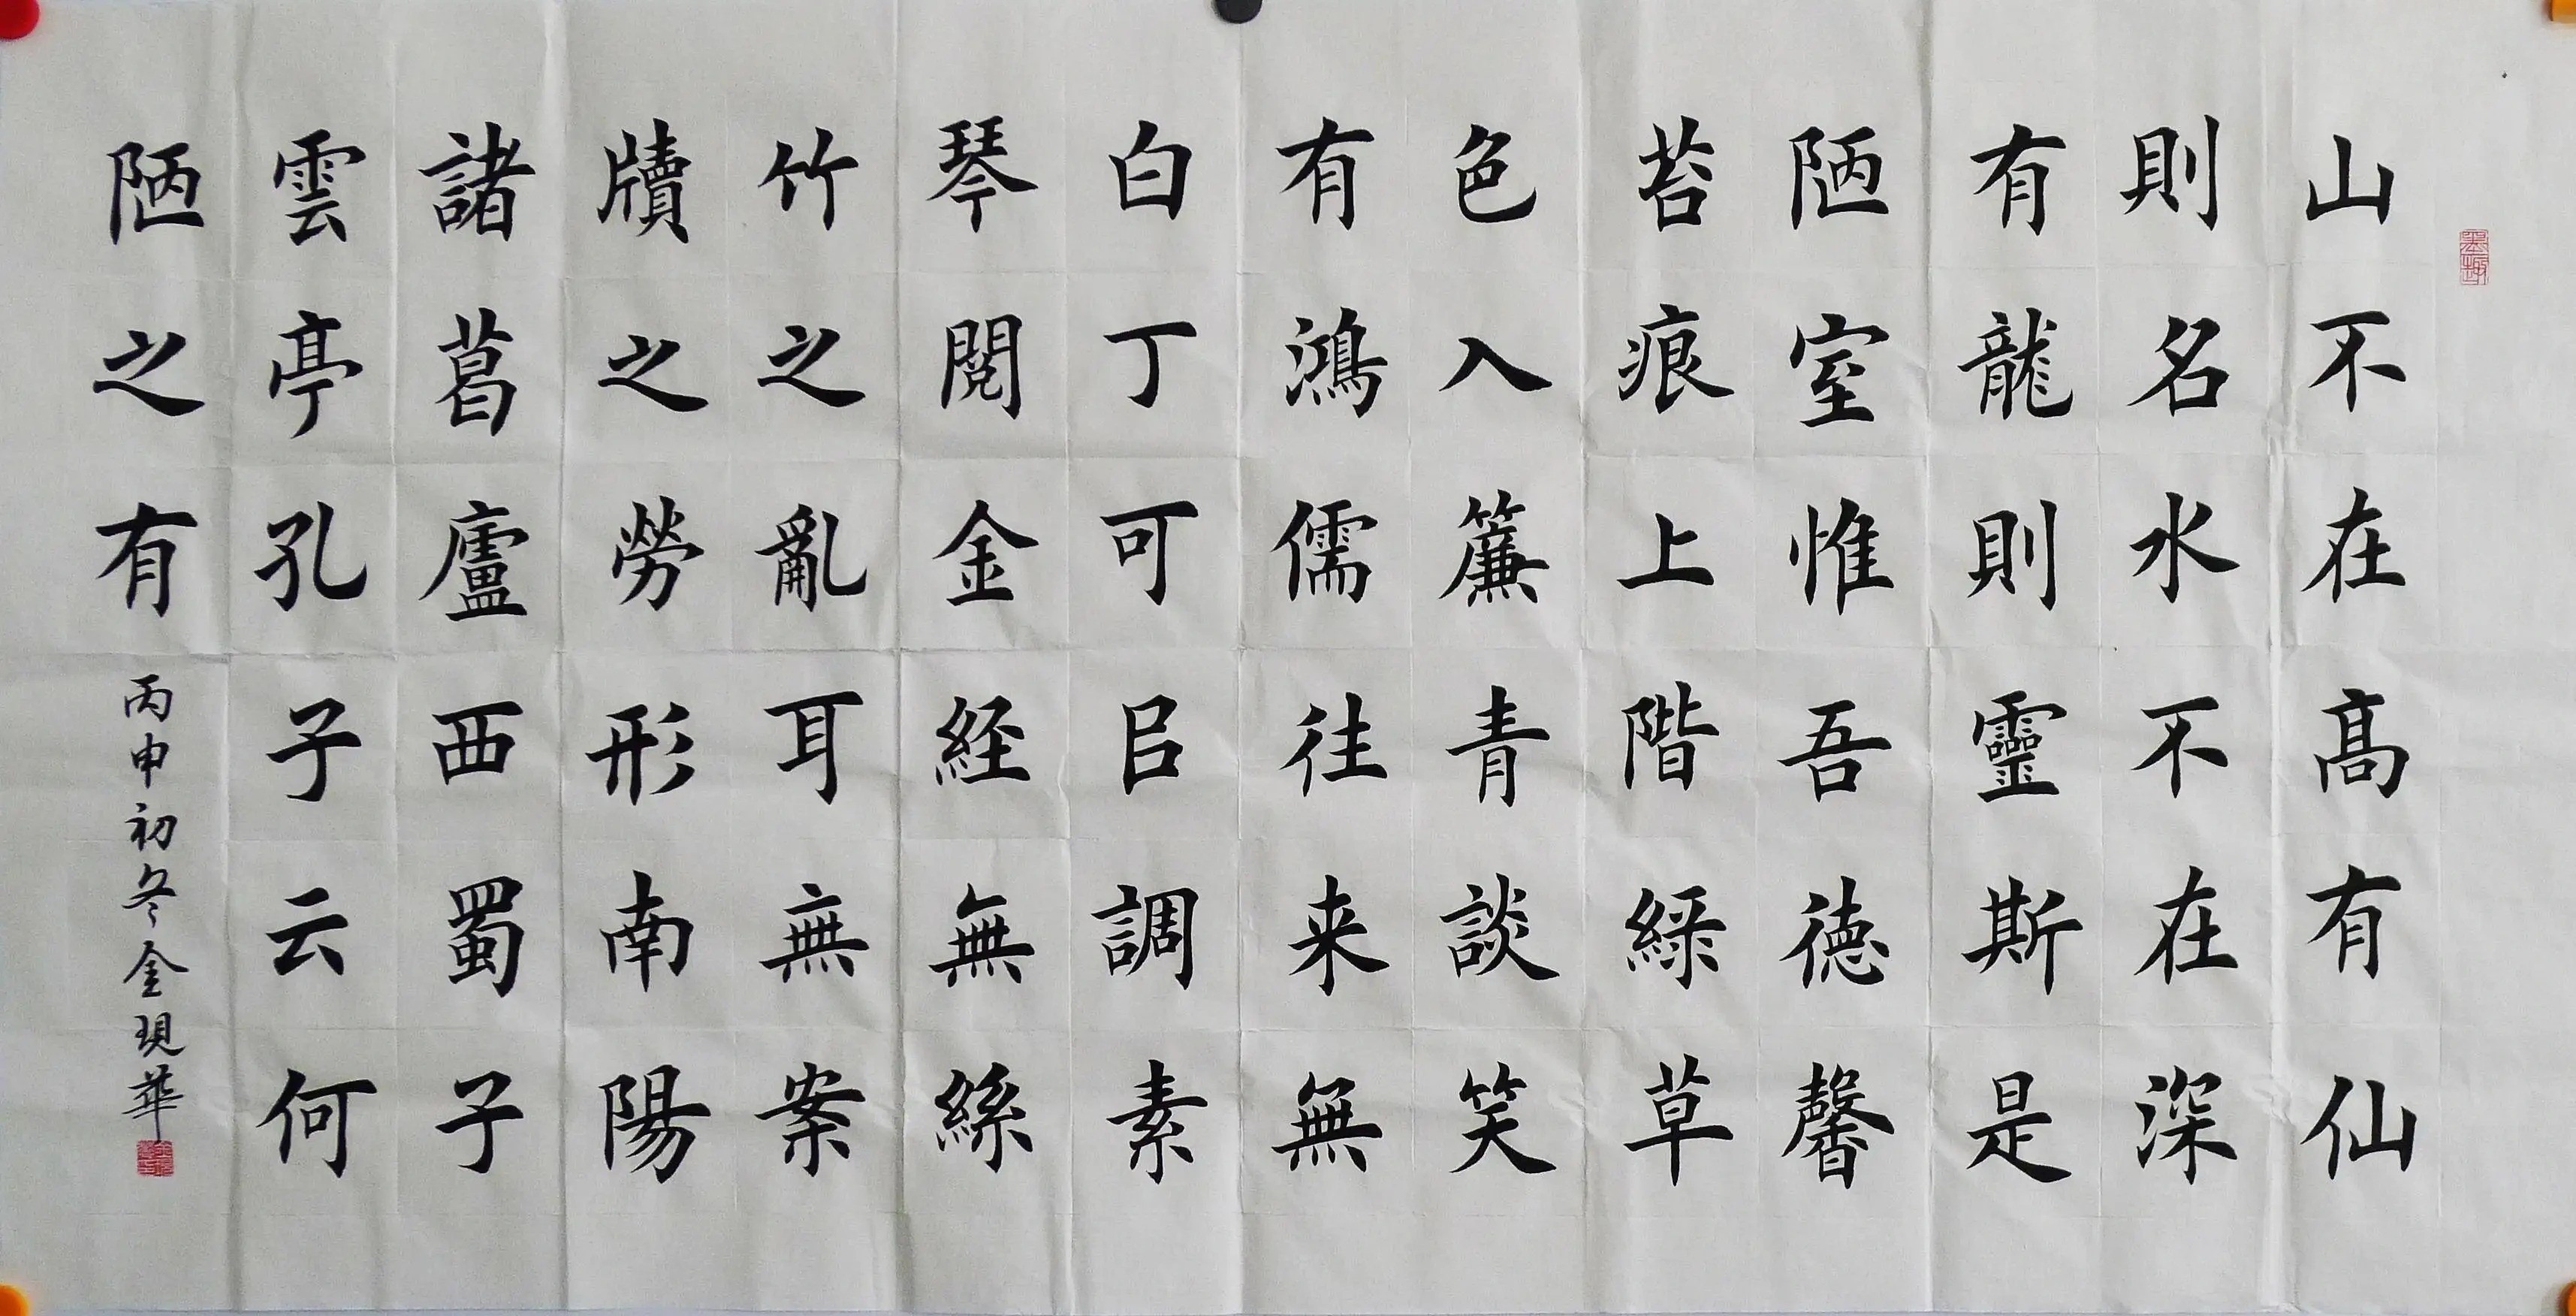 山不在高有仙
則名水不在深
有龍則靈斯是
陋室惟吾德馨
苔痕上階緑草
色入簾青談笑
有鴻儒往来無
白丁可㠯調素
琴閱金経無絲
竹之亂耳無案
牘之勞形南陽
諸葛廬西蜀子
雲亭孔子云何
陋之有
丙申初冬金現華
墨趣